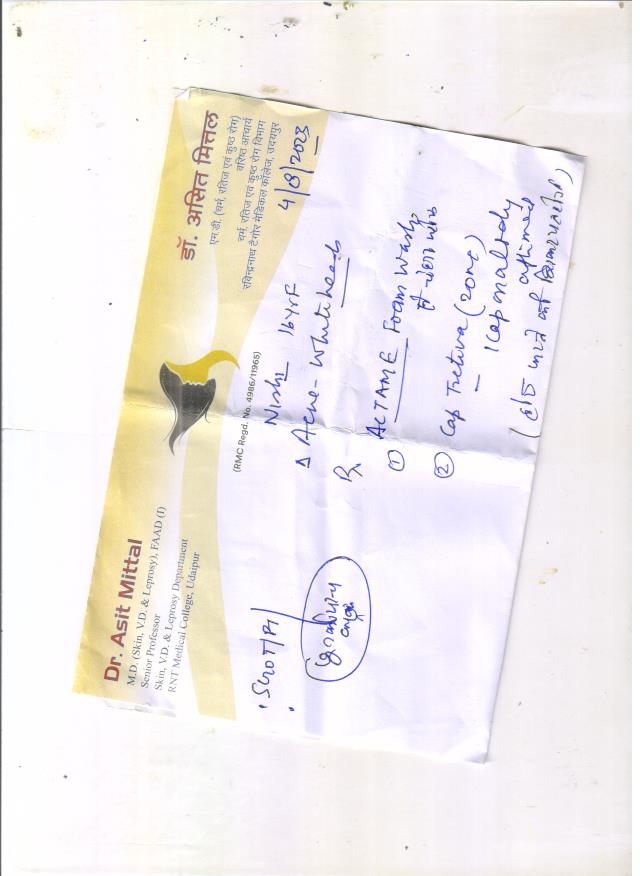 Dr. Asit Mittal
M.D. (Skin, V.D. & Leprosy), FAAD (I)
Senior Professor
Skin, V.D. & Leprosy Department
RNT Medical College, Udaipur
डॉ. असित मित्तल
एम.डी. (चर्म, रतिज एवं कुष्ठ रोग)
वरिष्ठ आचार्य
चर्म, रतिज एवं कुष्ठ रोग विभाग
रविन्द्रनाथ टैगोर मेडिकल कॉलेज, उदयपुर
(RMC Regd. No. 4986/11965)
4/8/2023
Nishi 16yrF
Δ Acne - Whiteheads
SGOT/PT
Rx
① ACTAME Foam Wash
से
② Cap Tretiva (20mg)
1 Cap